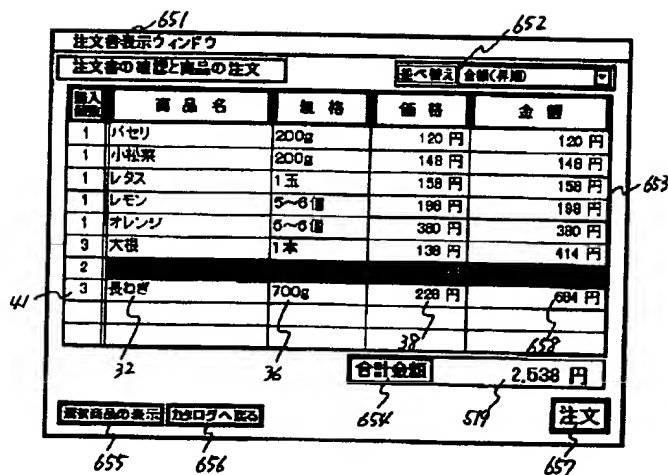 651
注文書表示ウィンドウ
652
注文書の確認と商品の注文
並べ替え 金額(昇順)
購入個数 商品名 規格 価格 金額
1 パセリ 200g 120 円 120 円
1 小松菜 200g 148 円 148 円
1 レタス 1玉 158 円 158 円
653
1 レモン 5~6個 198 円 198 円
1 オレンジ 5~6個 380 円 380 円
3 大根 1本 138 円 414 円
2
41
3 長ねぎ 700g 228 円 684 円
32 36 38 658
合計金額 2,538 円
654 519
選択商品の表示 カタログへ戻る 注文
655 656 657